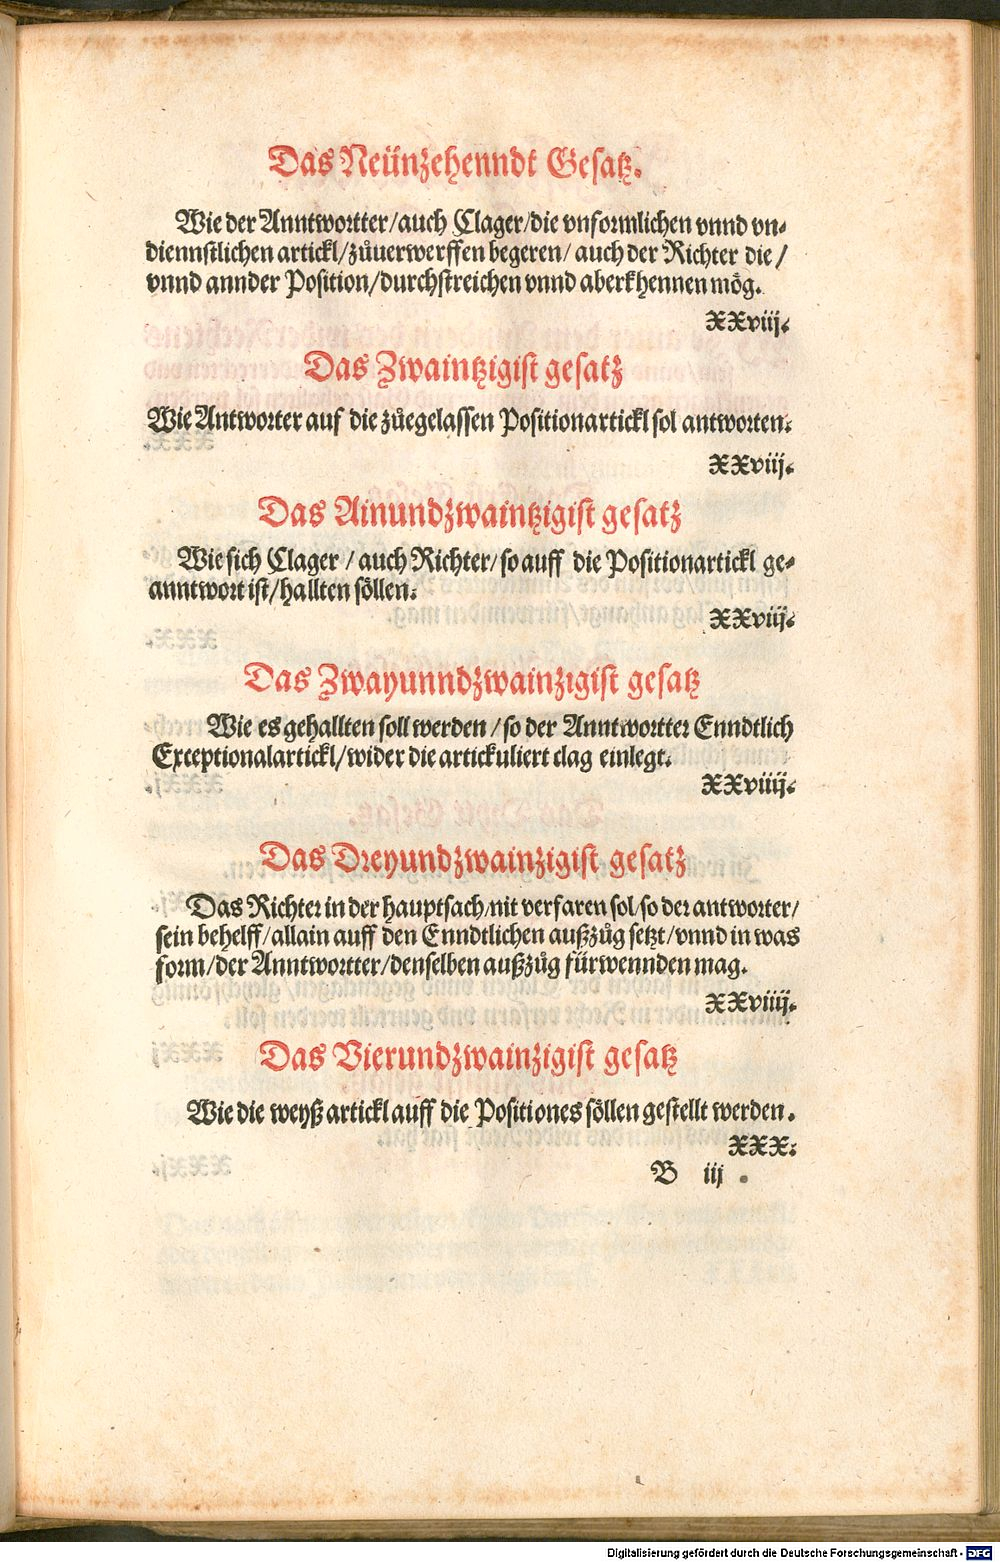 Das Neünzehenndt Gesatz.
Wie der Anntwortter/auch Clager/die vnformlichen vnnd vn-
diennstlichen artickl/zůuerwerffen begeren/ auch der Richter die/
vnnd annder Position/durchstreichen vnnd aberkhennen mög.
XXviij.
Das Zwaintzigist gesatz
Wie Antworter auf die zůegelassen Positionartickl sol antworten.
XXviij.
Das Ainundzwaintzigist gesatz
Wie sich Clager / auch Richter/so auff die Positionartickl ge-
anntwort ist/hallten söllen.
XXviij.
Das Zwayunndzwainzigist gesatz
Wie es gehallten soll werden /so der Anntwortter Enndtlich
Exceptionalartickl/wider die artickuliert clag einlegt.
XXviiij.
Das Dreyundzwainzigist gesatz
Das Richter in der hauptsach/nit verfaren sol/so der antworter/
sein behelff/allain auff den Enndtlichen außzůg setzt/vnnd in was
form/der Anntwortter/denselben außzůg fürwennden mag.
XXviiij.
Das Vierundzwainzigist gesatz
Wie die weyß artickl auff die Positiones söllen gestellt werden.
XXX.
B iij
Digitalisierung gefördert durch die Deutsche Forschungsgemeinschaft - DFG